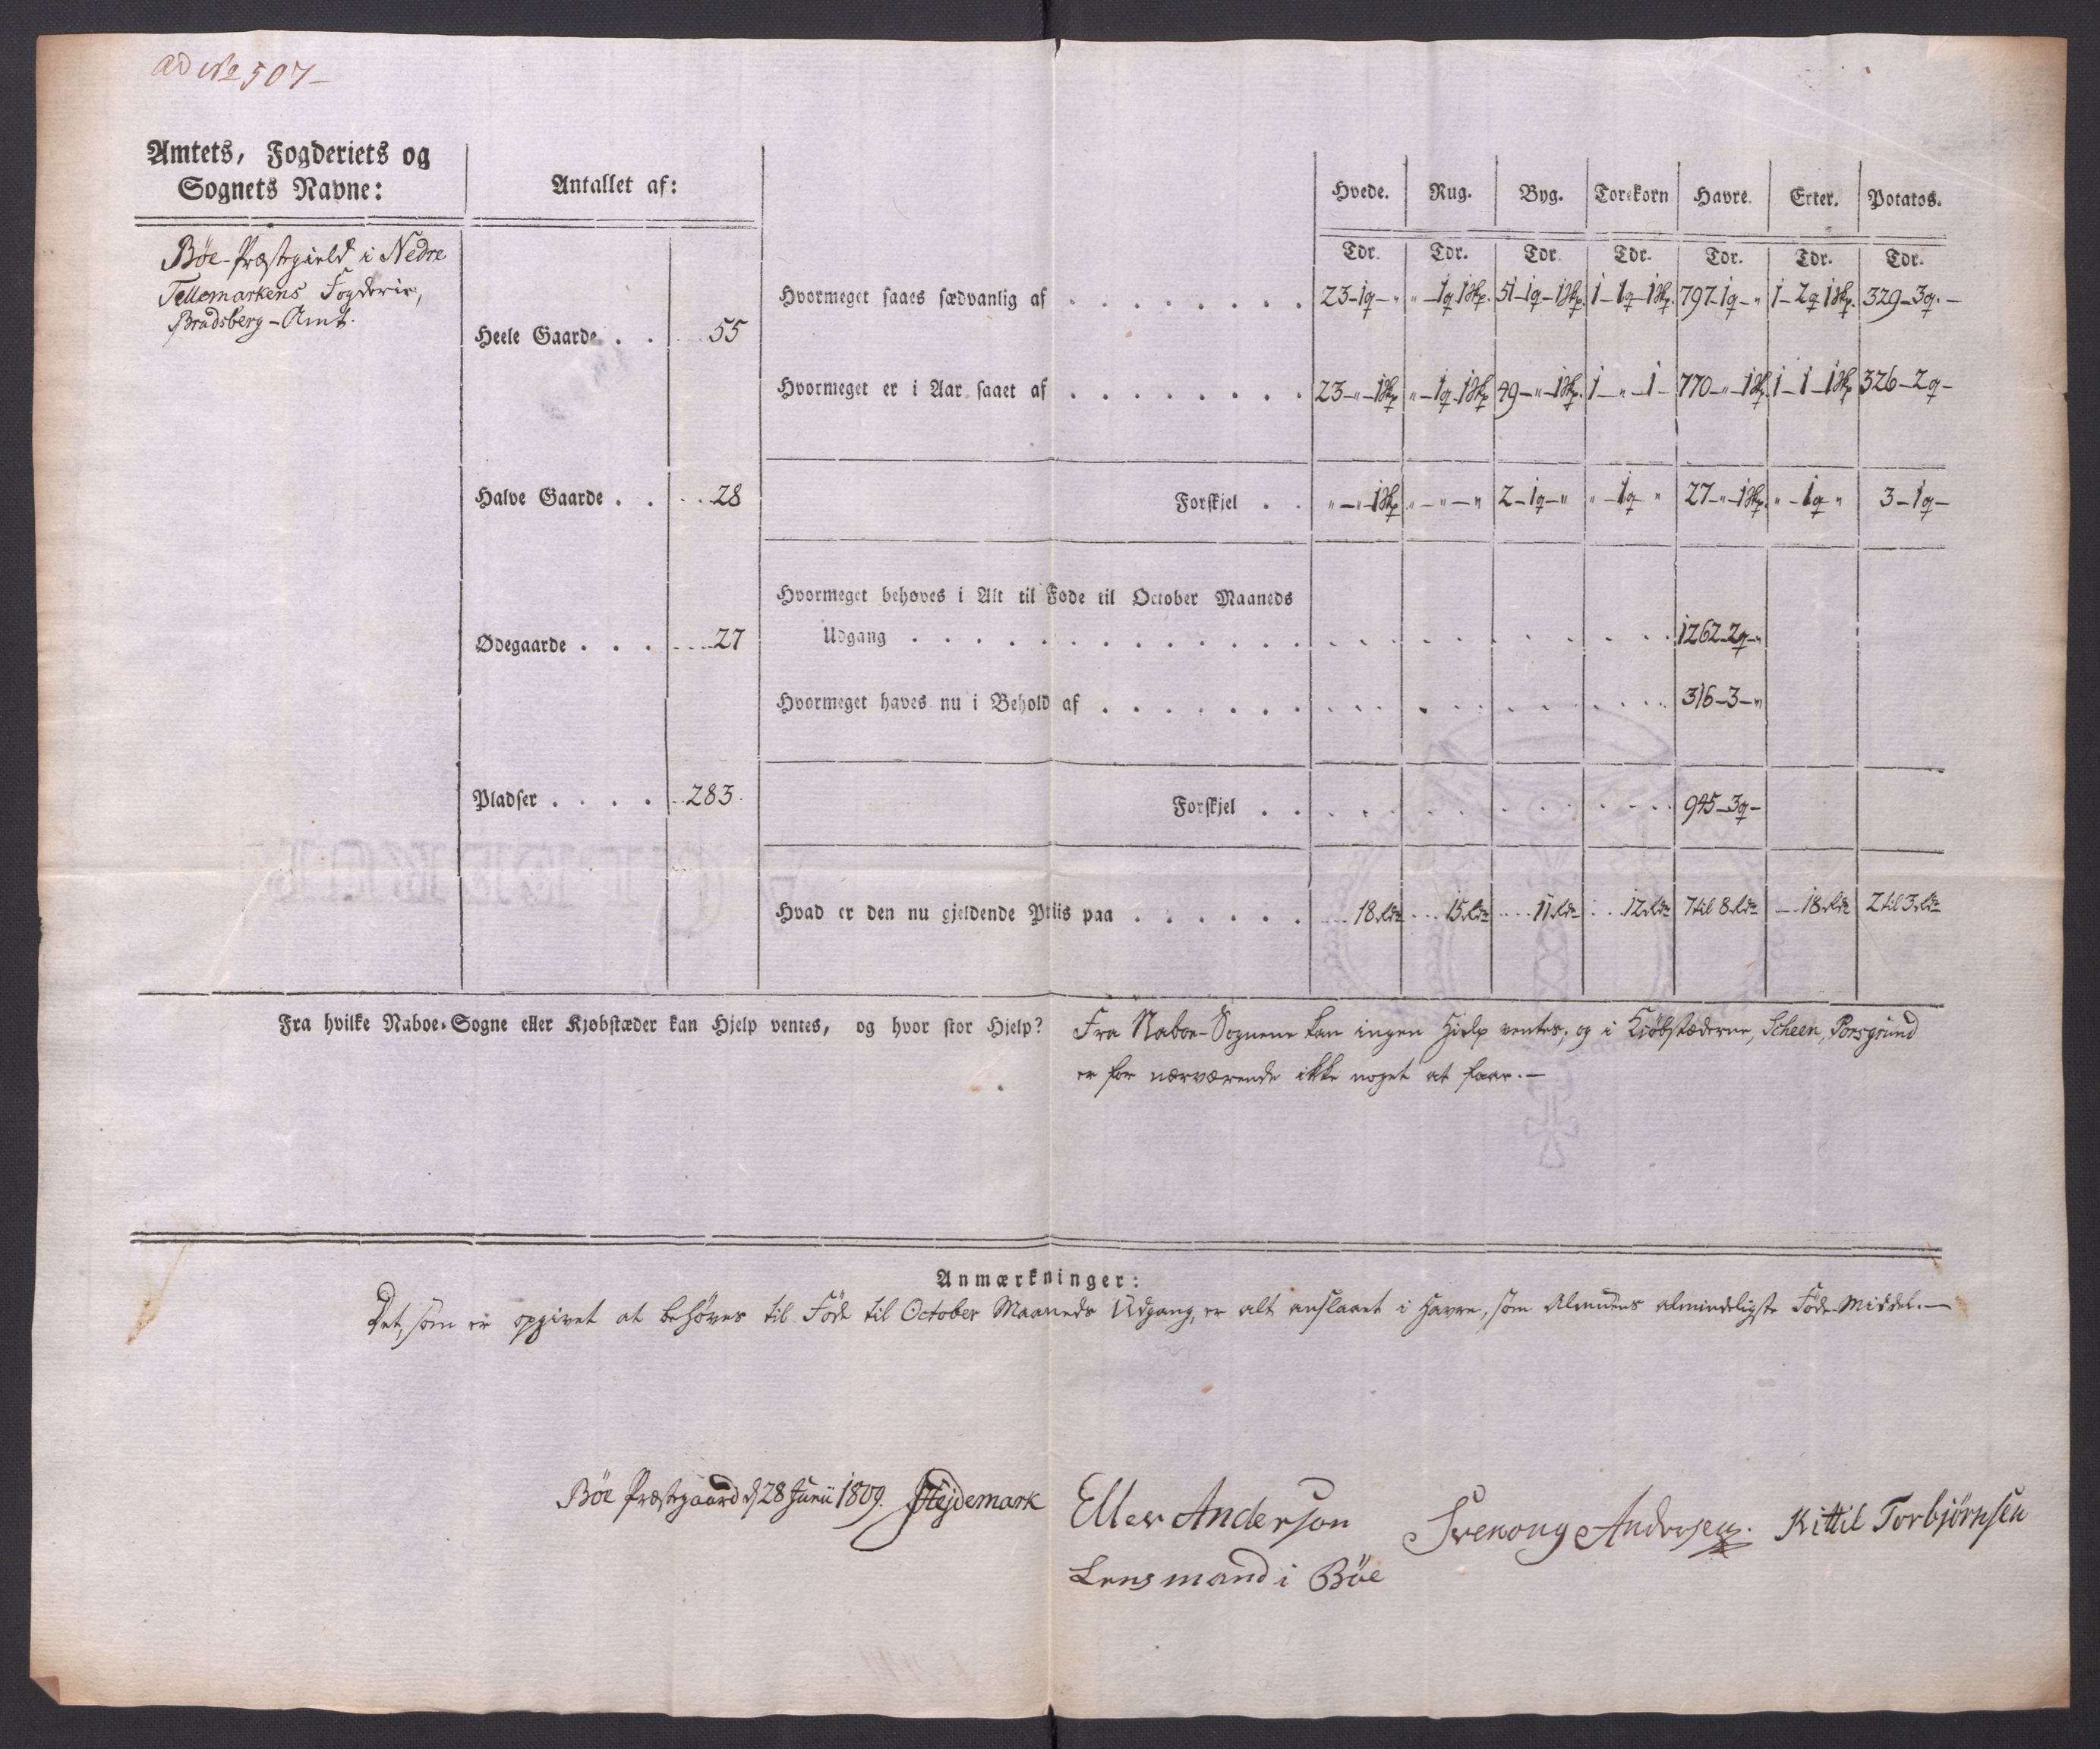 ad No 507 –
Amtets, Fogderiets og
Sognets Navne:
Antallet af:
Hvede. Rug. Byg. Torekorn Havre. Erter. Potatos.
Tdr. Tdr. Tdr. Tdr. Tdr. Tdr. Tdr.
Bøe-Præstegield i Nedre
Tellemarkens Fogderie,
Bradsberg-Amt.
Hvormeget saaes sædvanlig af 23-1q-" "-1q 1Skp. 51-1q-1Skp. 1-1q-1Skp. 797-1q-" 1-2q 1Skp. 329-3q.-
Heele Gaarde 55
Hvormeget er i Aar saaet af 23-"-1Skp "-1q-1Skp 49-"-1Skp. 1-"-1- 770-"-1Skp. 1-1-1Skp 326-2q-
Halve Gaarde 28
Forskjel "-"-1Skp "-"-" 2-1q-" "-1q " 27-"-1Skp. "-1q " 3-1q-
Hvormeget behøves i Alt til Føde til October Maaneds
Udgang 1262-2q-"
Ødegaarde 27
Hvormeget haves nu i Behold af 316-3-"
Pladser 283.
Forskjel 945-3q-
Hvad er den nu gjeldende Priis paa 18 Rdr 15 Rdr 11 Rdr 12 Rdr 7 til 8 Rdr 18 Rdr 2 til 3 Rdr
Fra hvilke Naboe-Sogne eller Kjøbstæder kan Hjelp ventes, og hvor stor Hjelp? Fra Naboe-Sognene kan ingen Hielp ventes; og i Kiøbstæderne, Scheen, Porsgrund
er for nærværende ikke noget at faae.-
Anmærkninger:
Det, som er opgivet at behøves til Føde til October Maaneds Udgang, er alt anslaaet i Havre, som Almuens almindeligste Føde-Middel.-
Bøe Præstegaard d. 28 Junii 1809. Hejdemark
Ellev Anderson
Lensmand i Bøe
Svenong Andersen.
Kittil Torbjørnsen